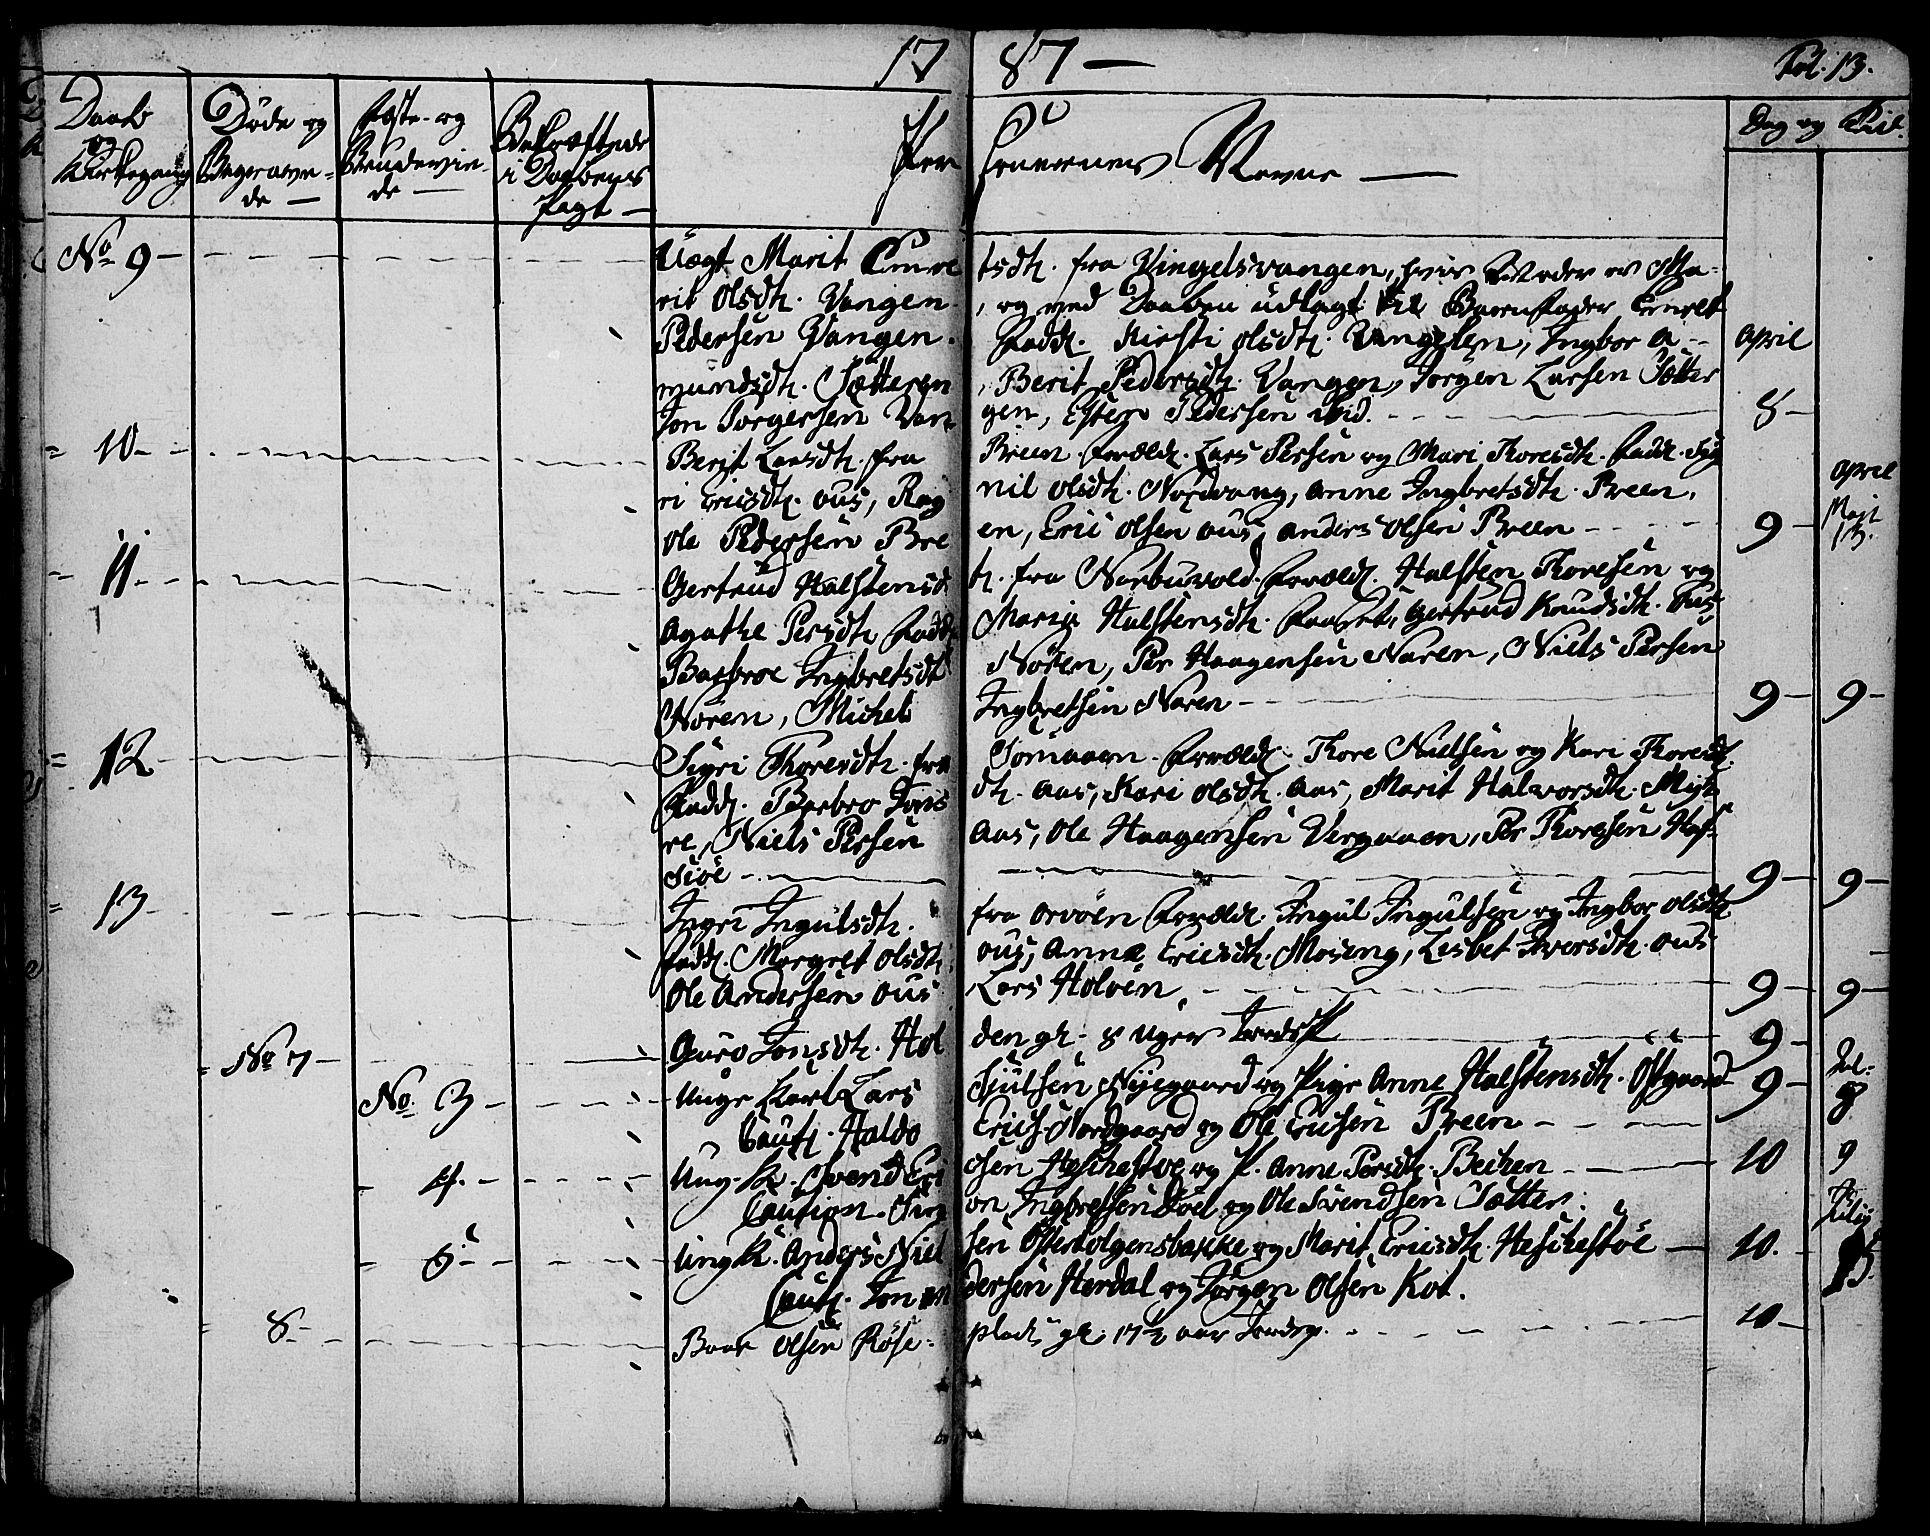 1787 —
Fol. 13.
Daab og Kirkegang
Døde og Begravne-de —
Fæste- og Brudevie-de —
Bekræftede i Daabens Pagt —
Personernes Navne —
Dag og Tid.
No 9 — Uægt Marit Emretsdtr. fra Vingelsvangen, hvis Moder er Ma-
rit Olsdtr. Vangen, og ved Daaben udlagt til Barnefader Emret
Pedersen Vangen. Fadd. Kirsti Olsdtr. Vangelen, Ingbor A- April
mundsdtr. Sætteren, Berit Pedersdtr. Vangen, Jörgen Larsen Sötter
Jon Jorgersen Vangen, Esten Pedersen ibid. 8 —
10 — Berit Larsdtr. fra Breen. Foræld. Lars Persen og Mari Thoresdtr. Fadd. Sig
ri Ericsdtr. ous, Ragnil Olsdtr. Nordvang, Anne Ingbretsdtr. Breen, April
Ole Pedersen Breen, Eric Olsen ous, Anders Olsen Breen 9 — Maji 13.
11 — Gertrud Halstensdtr. fra Narbuvold. Foræld. Halsten Thoresen og
Agathe Persdtr. Fadd. Maria Halstensdtr. Gertrud Knudsdtr.
Barbroe Ingbretsdtr Nören, Per Haagensen Naren, Niels Persen
Noren, Michel Ingbretsen Naren — 9 — 9 —
12 — Sigri Thoresdtr. fra Sömaaen. Foræld. Thore Nielsen og Kari Thoresdt.
Fadd. Barbro Jonsdtr. Aas, Kari Olsdtr. Aas, Marit Halvorsdtr. Myh
re, Niels Persen Aas, Ole Haagensen Vergaaen, Per Thoresen Haf-
siöe — 9 — 9 —
13 — Ingri Ingulsdtr. fra Orvöen Foræld. Ingul Ingulsen og Ingbor Olsdtr
Fadd. Margret Olsdtr. ous, Anne Ericsdtr. Moseng, Lisbet Iversdtr. ous
Ole Andersen ous Lars Holöien 9 — 9 —
No 7 — Guro Jonsdtr. Holden gl. 8 Uger 9 —
No 3 — Unge Karl Lars Sjulsen Nijegaard og Pige Anne Halstensdtr. Ostgaard 9 — Jul. 8
Caut. Haldo Erics. Nordgaard og Ole Ericsen Breen —
4. — Ung. K. Svend Ericsen Heschestöe og P. Anne Persdtr. Becken — 10 9
Caution. Ingbretsen og Ole Svendsen Sötter.
5 — Ung K. Anders Nielsen Österholgensbakke og Marit Ericsdtr. Heschestöe — 10. Julij 15.
Caut. Jon Andersen Herdal og Jörgen Olsen Kot.
8 — Baar Olsen Röseplads gl. 17½ aar 10 —